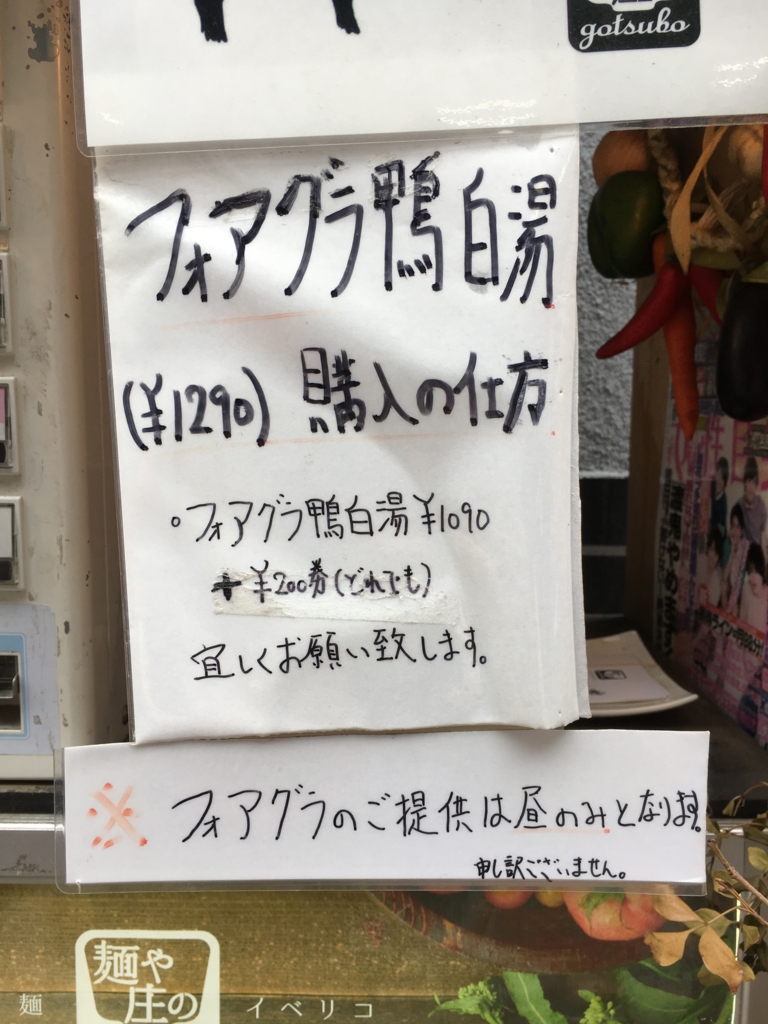 gotsubo
フォアグラ鴨白湯
(¥1290) 購入の仕方
・フォアグラ鴨白湯 ¥1090
+ ¥200券(どれでも)
宜しくお願い致します。
※ フォアグラのご提供は昼のみとなります。
申し訳ございません。
麺や
庄の
麺
イベリコ